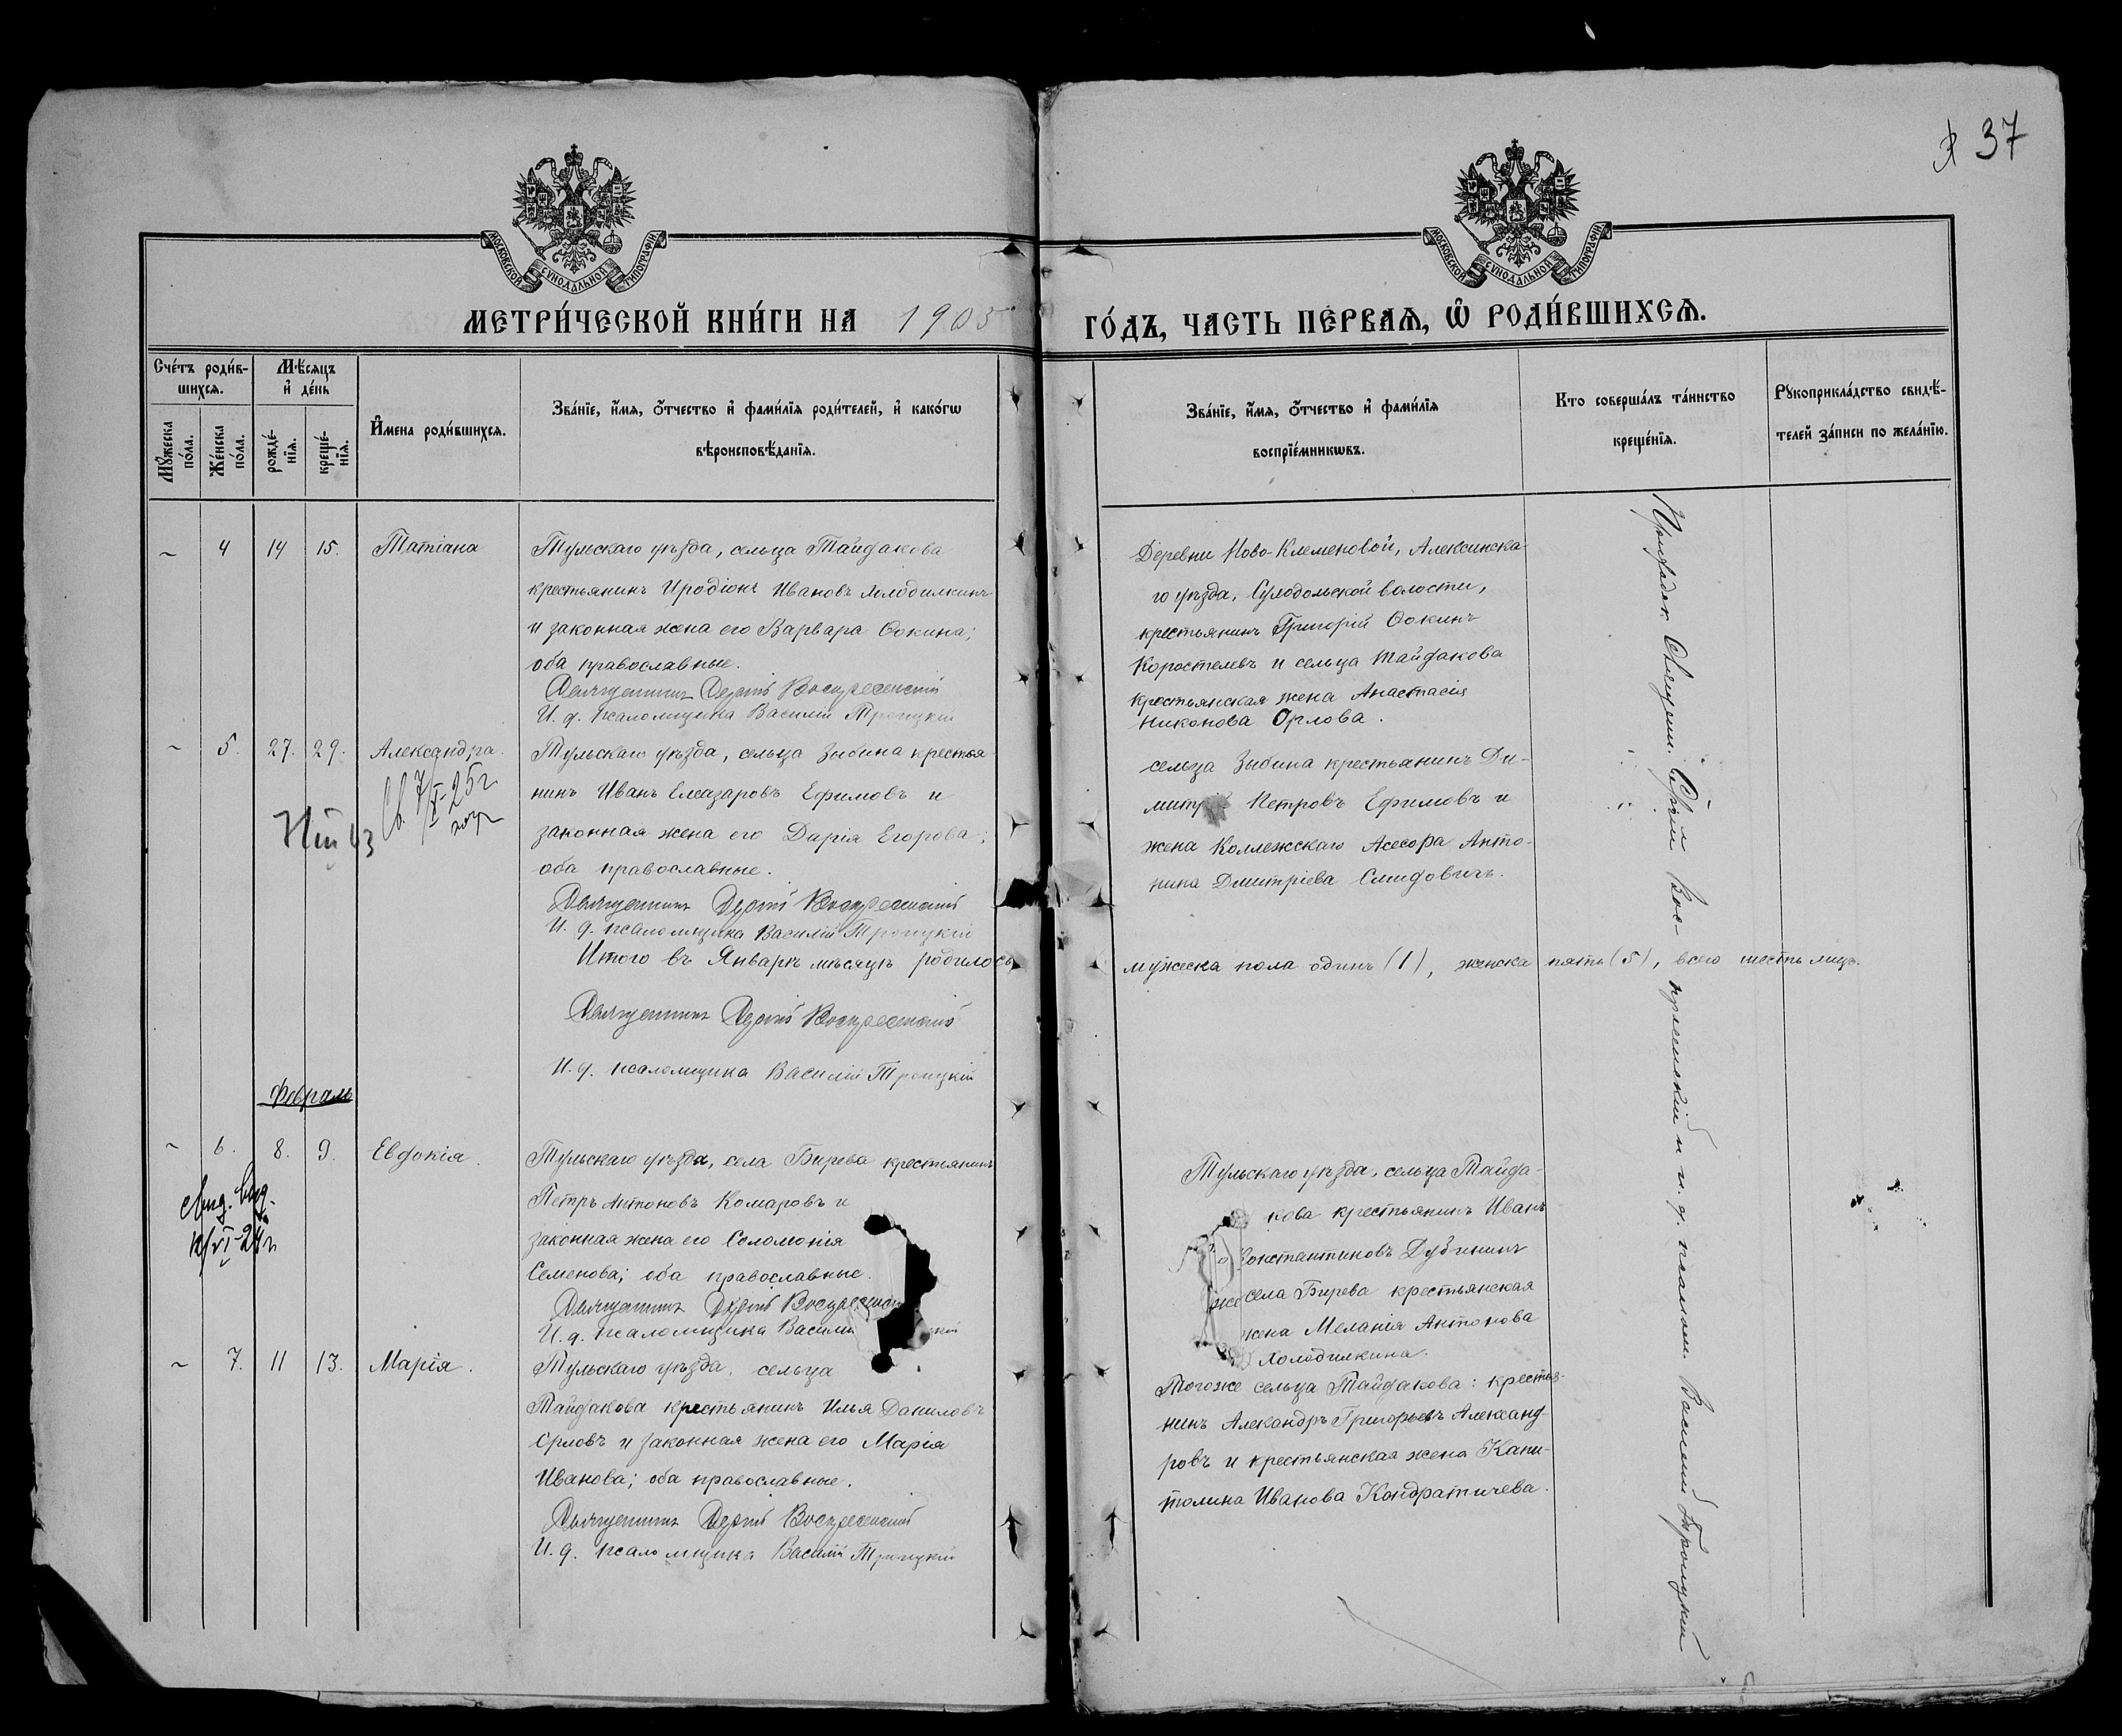 37
МОСКОВСКОЙ СУНОДАЛЬНОЙ ТИПОГРАФІИ
МОСКОВСКОЙ СУНОДАЛЬНОЙ ТИПОГРАФІИ
МЕТРИ́ЧЕСКОЙ КНИ́ГИ НА 1905
ГО́ДЪ, ЧАСТЬ ПЕ́РВАѦ, Ѡ РОДИ́ВШИХСѦ.
Сче́тъ роди́в-
шихсѧ.
Мѣ́сѧцъ
и҆ де́нь
Мꙋ́жеска
по́ла.
Же́нска
по́ла.
рожде́-
нїѧ.
креще́-
нїѧ.
И҆мена роди́вшихсѧ.
Зва́нїе, и҆́мѧ, ѻ҆́тчество и҆ фами́лїѧ роди́телей, и҆ како́гѡ
вѣроисповѣ́данїѧ.
Зва́нїе, и҆́мѧ, ѻ҆́тчество и҆ фами́лїѧ
воспрїе́мникѡвъ.
Кто соверша́лъ та́инство
креще́нїѧ.
Рꙋкоприкла́дство свидѣ́-
телей за́писи по жела́нїю.
~ 4 14 15. Татіана
Тульскаго уѣзда, сельца Тайдакова
крестьянинъ Иродіонъ Ивановъ Холодилкинъ
и законная жена его Варвара Ѳокина;
оба православные.
Священникъ Сергій Воскресенскій
И. д. псаломщика Василій Троицкій
Деревни Ново-Клеменовой, Алексинска-
го уѣзда, Сулодольской волости,
крестьянинъ Григорій Ѳокинъ
Коростелевъ и сельца Тайдакова
крестьянская жена Анастасія
Никонова Орлова.
~ 5. 27. 29. Александра.
Тульскаго уѣзда, сельца Зыбина крестья-
нинъ Иванъ Елеазаровъ Ефимовъ и
законная жена его Дарія Егорова;
оба православные.
Священникъ Сергій Воскресенскій
И. д. псаломщика Василій Троицкій
сельца Зыбина крестьянинъ Ди-
митрій Петровъ Ефимовъ и
жена Коллежскаго Асесора Анто-
нина Дмитріева Смидовичъ.
Итого въ Январѣ мѣсяцѣ родилось
мужеска пола одинъ (1), женска пять (5), всего шесть лицъ.
Священникъ Сергій Воскресенскій
И. д. псаломщика Василій Троицкій
Февраль
~ 6. 8. 9. Евдокія.
Тульскаго уѣзда, села Бирева крестьянинъ
Петръ Антоновъ Комаровъ и
законная жена его Соломонія
Семенова; оба православные.
Священникъ Сергій
И. д. псаломщика
Тульскаго уѣзда, сельца Тайда-
кова крестьянинъ Иванъ
Константиновъ Дубининъ
села Бирева крестьянская
жена Меланія Антонова
Холодилкина.
~ 7. 11 13. Марія.
Тульскаго уѣзда, сельца
Тайдакова крестьянинъ Илья Даниловъ
Орловъ и законная жена его Марія
Иванова; оба православные.
Священникъ Сергій Воскресенскій
И. д. псаломщика Василій Троицкій
Тогоже сельца Тайдакова: крестья-
нинъ Александръ Григорьевъ Александ-
ровъ и крестьянская жена Капи-
толина Иванова Кондратичева.
Священ. Сергій Вос-
кресенскій и и. д. псалом. Василій Троицкій